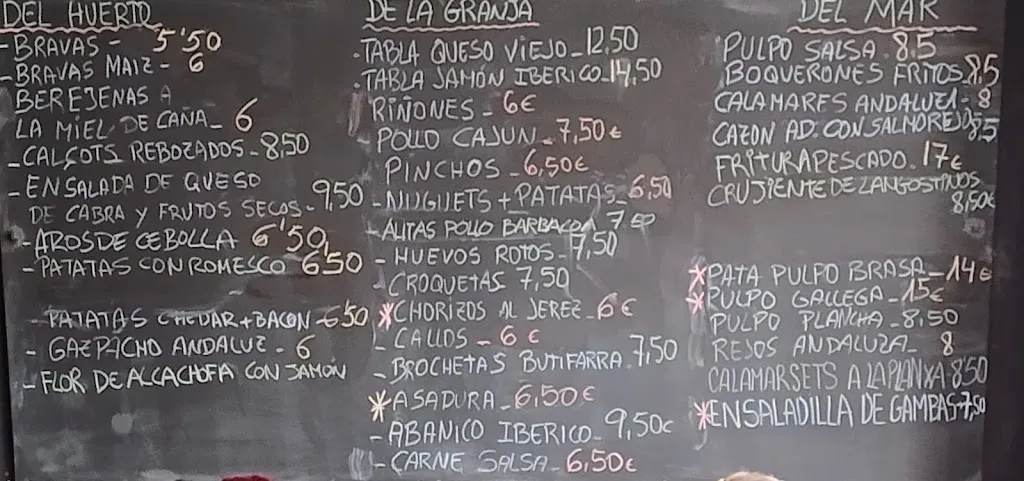 DEL HUERTO
-BRAVAS- 5'50
-BRAVAS MAIZ- 6
BEREJENAS A
LA MIEL DE CAÑA_ 6
-CALÇOTS REBOZADOS-8,50
-ENSALADA DE QUESO
DE CABRA Y FRUTOS SECOS- 9,50
-AROS DE CEBOLLA 6'50
-PATATAS CON ROMESCO 6'50
-PATATAS CHEDAR+BACON-6'50
- GAZPACHO ANDALUZ - 6
- FLOR DE ALCACHOFA CON JAMÓN
DE LA GRANJA
-TABLA QUESO VIEJO-12,50
-TABLA JAMÓN IBERICO-14,50
RIÑONES - 6€
POLLO CAJUN-7,50€
PINCHOS -6,50€
-NUGUETS+PATATAS-6,50
-ALITAS POLLO BARBACOA 7'50
- HUEVOS ROTOS-7,50
-CROQUETAS 7,50
*CHORIZOS AL JEREZ-6€
-CALLOS - 6€
-BROCHETAS BUTIFARRA.7,50
*ASADURA-6,50€
-ABANICO IBERICO-9,50€
-CARNE SALSA-6,50€
DEL MAR
PULPO SALSA.8.5
BOQUERONES FRITOS 8.5
CALAMARES ANDALUZA-8
CAZON AD. CON SALMOREJO 8,5
FRITURA PESCADO.17€
CRUJIENTE DE LANGOSTINOS
8,50€
*PATA PULPO BRASA-14€
*PULPO GALLEGA-15€
PULPO PLANCHA-8,50
REJOS ANDALUZA- 8
CALAMARSETS A LA PLANXA 8'50
*ENSALADILLA DE GAMBAS-7,50